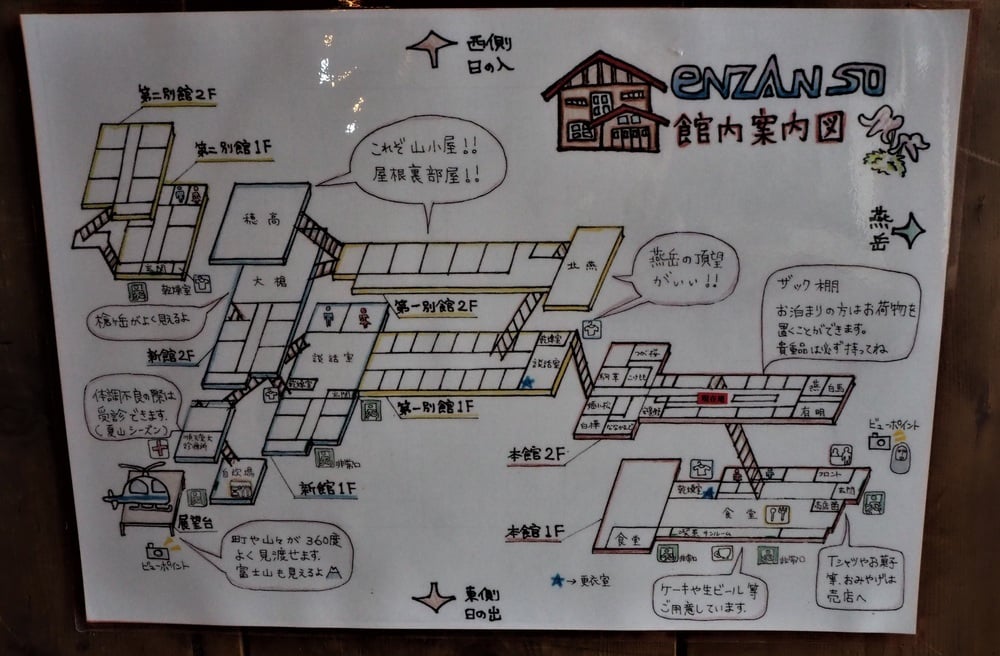 西側
日の入
ENZANSO
館内案内図
第二別館2F
第二別館1F
これぞ山小屋!!
屋根裏部屋!!
燕岳
穂高
大槍
北燕
燕岳の頂望
がいい!!
玄関
乾燥室
槍ヶ岳がよく見えるよ
第一別館2F
ザック棚
お泊まりの方はお荷物を
置くことができます。
貴重品は必ず持ってね
新館2F
談話室
乾燥室
談話室
乾燥室
玄関
第一別館1F
体調不良の際は
受診できます。
(夏山シーズン)
順天堂大
診療所
つが桜
こけもも
白樺
ななかまど
現在地
燕
白馬
有明
ビューポイント
本館2F
自炊場
非常口
新館1F
展望台
ビューポイント
町や山々が360度
よく見渡せます。
富士山も見えるよ
本館1F
乾燥室
フロント
玄関
売店
食堂
食堂
喫茶サンルーム
非常口
非常口
★→更衣室
ケーキや生ビール等
ご用意しています。
Tシャツやお菓子
等、おみやげは
売店へ
東側
日の出